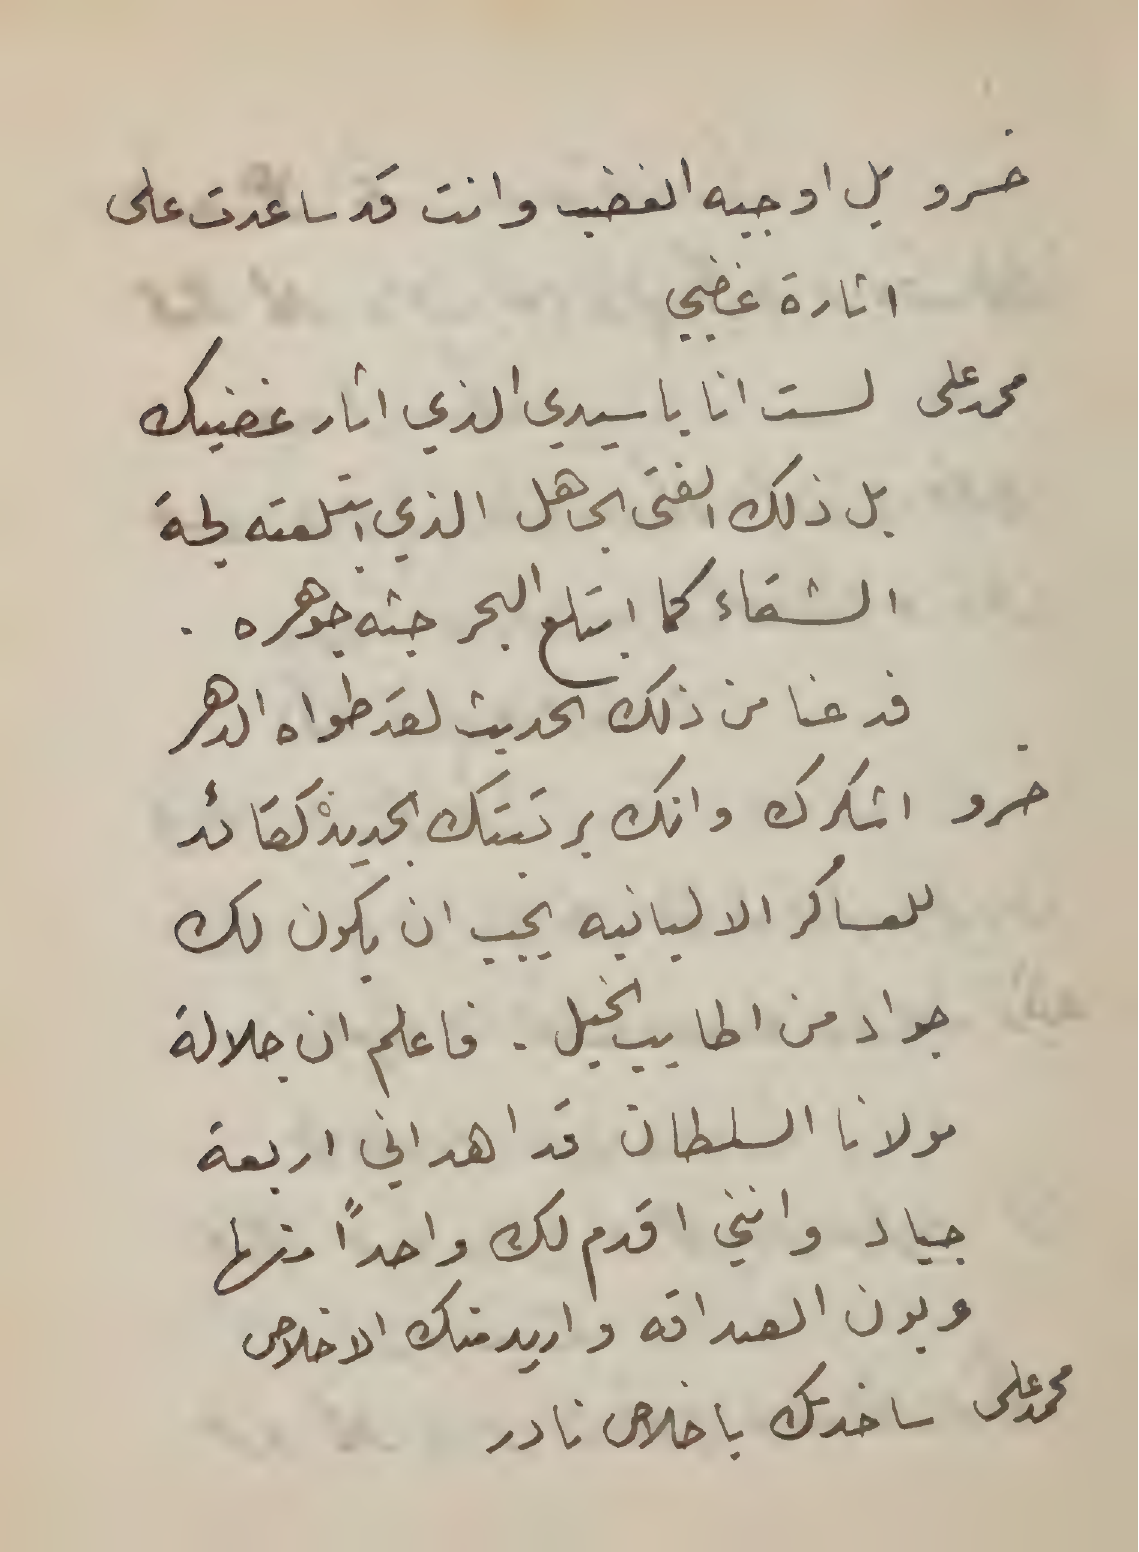 خسرو بل اوجيه الغضب وانت قد ساعدت على
اثارة غضبي
محمد على لست انا يا سيدي الذي اثار غضبك
بل ذلك الفتى الجاهل الذي ابتلعته لجة
الشقاء كما ابتلع البحر جثه جوهره .
فدعنا من ذلك الحديث لقد طواه الدهر
خسرو اشكرك وانك برتبتك الجديدة كقائد
للعساكر الالبانيه يجب ان يكون لك
جواد من اطايب الخيل . فاعلم ان جلالة
مولانا السلطان قد اهداني اربعة
جياد وانني اقدم لك واحداً منها
عربون الصداقه واريد منك الاخلاص
محمد على ساخدمك باخلاص نادر